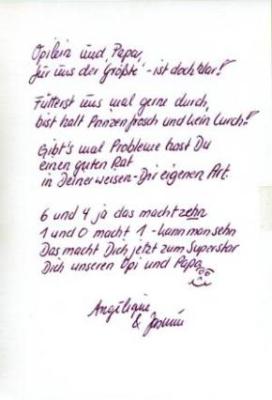 Opilein und Papa,
für uns der "Größte" - ist doch klar!!
Fütterst uns mal gerne durch,
bist halt Panzenfrosch und kein Lurch!!
Gibt's mal Probleme hast Du
einen guten Rat
in Deiner weisen - Dir eigenen Art.
6 und 4 ja das macht zehn
1 und 0 macht 1 - kann man sehn
Das macht Dich jetzt zum Superstar
Dich unseren Opi und Papa
Angelique
&